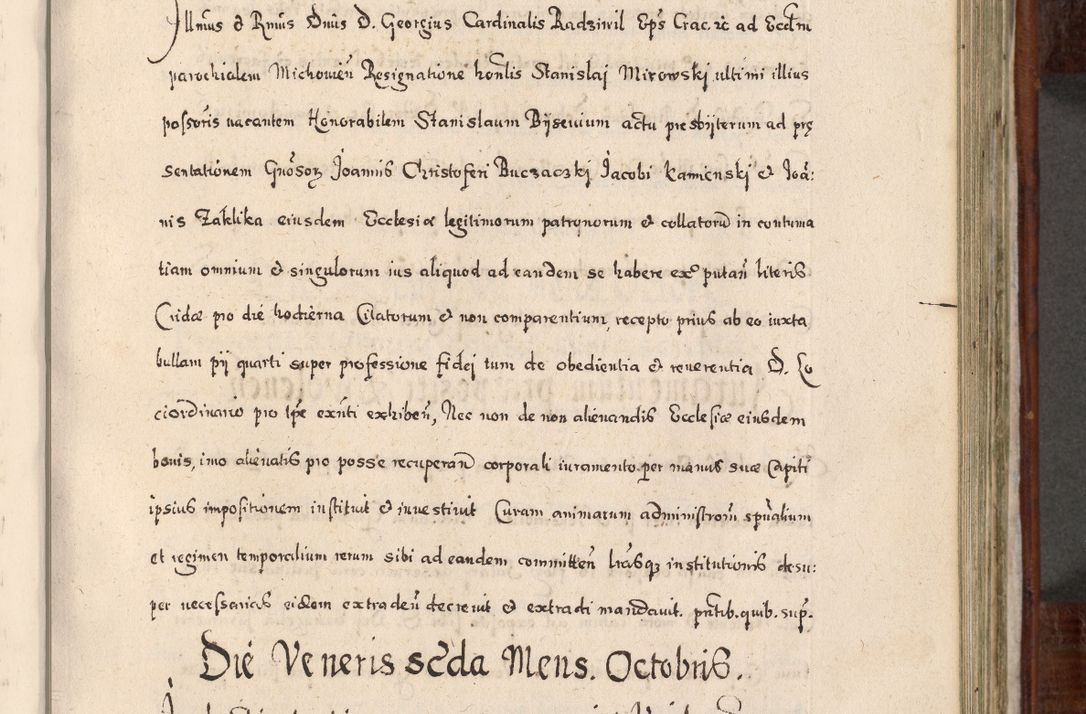 Illmus & Rmus Dnus D. Georgius Cardinalis Radziwil Eps Crac. &c ad Eccłm
parochialem Michowień Resignatione honlis Stanislaj Mirowskj ultimi illius
possoris vacantem Honorabilem Stanislaum Bijsevium actu presbijterum ad prę
sentationem Gnosoꝝ Joannis Christoferi Buczaczkj Jacobi Kamienskj & Joā:
nis Zaklika eiusdem Ecclesiæ legitimorum patronorum & collatorū in contuma
tiam omnium & singulorum ius aliquod ad eandem se habere exº putań literis
Cridæ pro die hodierna Citatorum & non comparentium, recepto prius ab eo iuxta
bullam pij quarti super professione fidej tum de obedientia & reverentia D. Lo
ci ordinario pro tpe exnti exhibeń, Nec non de non alienandis Ecclesiæ eiusdem
bonis, imo alienatis pro posse recuperań corporali iuramento per manus suæ Capiti
ipsius impositionem instituit & investivit Curam animarum administrom spualium
et regimen temporalium rerum sibi ad eandem committeń lrasqꝫ institutionis desu:
per necessarias eidem extradeń decrevit & extradi mandavit. pntib. quib. sup.
Die Veneris scda Mens. Octobris.